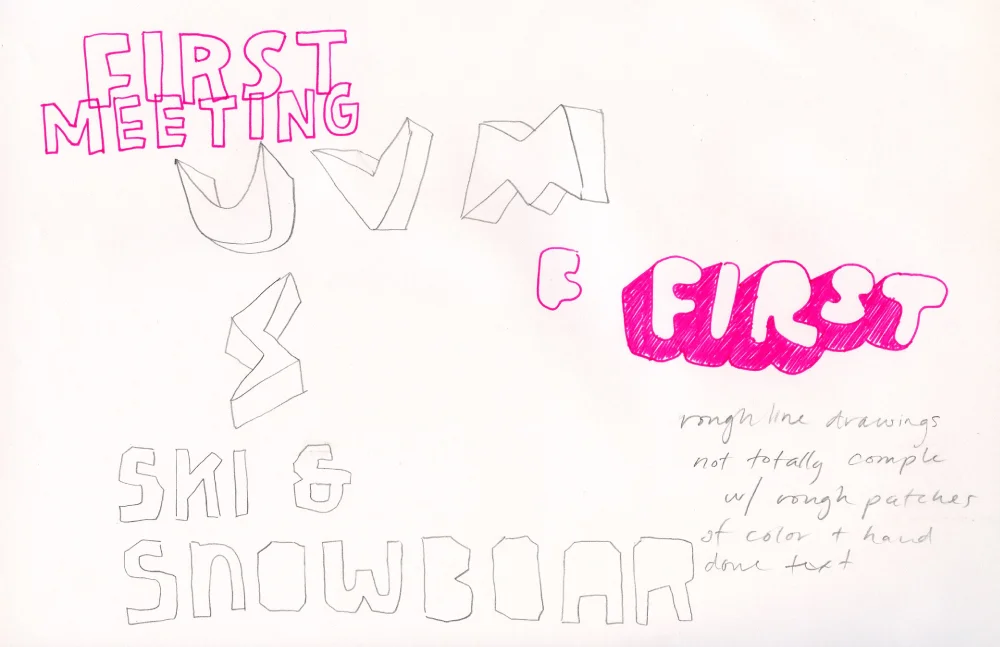 FIRST
MEETING
UVM
F
FIRST
S
SKI &
SNOWBOAR
rough line drawings
not totally comple
w/ rough patches
of color + hand
done text